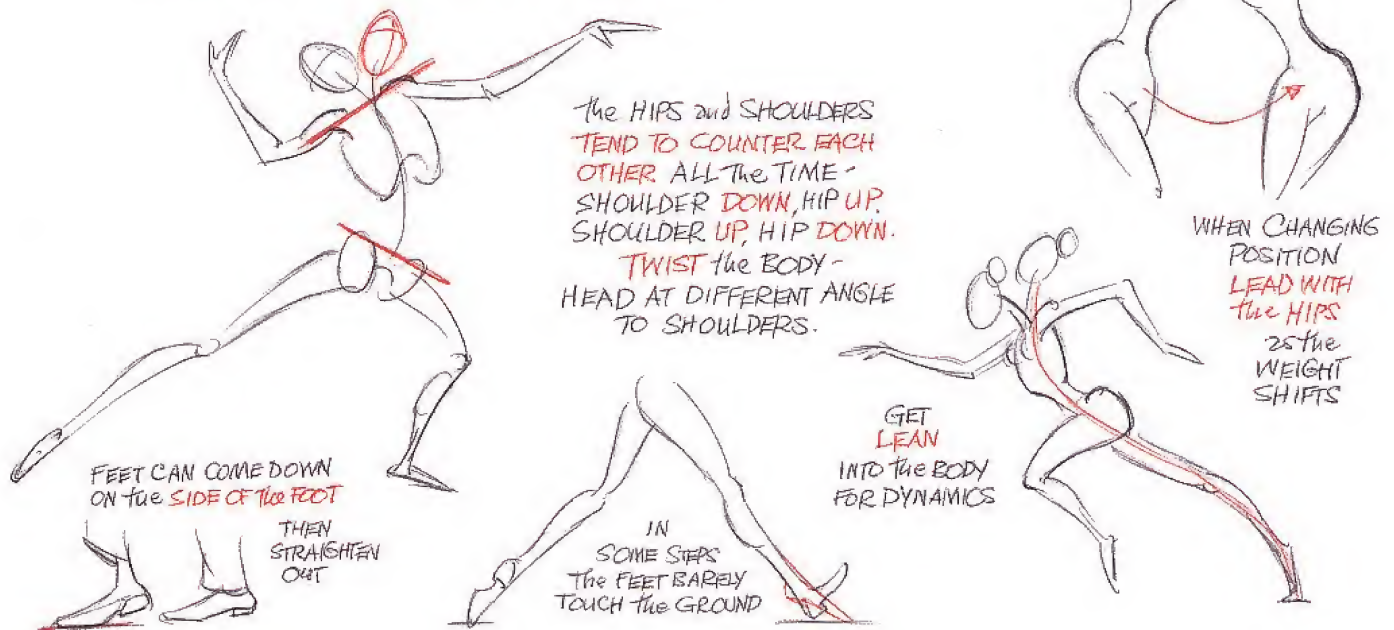 the HIPS and SHOULDERS
TEND TO COUNTER EACH
OTHER ALL the TIME -
SHOULDER DOWN, HIP UP.
SHOULDER UP, HIP DOWN.
TWIST the BODY -
HEAD AT DIFFERENT ANGLE
TO SHOULDERS.
WHEN CHANGING
POSITION
LEAD WITH
the HIPS
as the
WEIGHT
SHIFTS
GET
LEAN
INTO the BODY
FOR DYNAMICS
FEET CAN COME DOWN
ON the SIDE OF the FOOT
THEN
STRAIGHTEN
OUT
IN
SOME STEPS
The FEET BARELY
TOUCH the GROUND